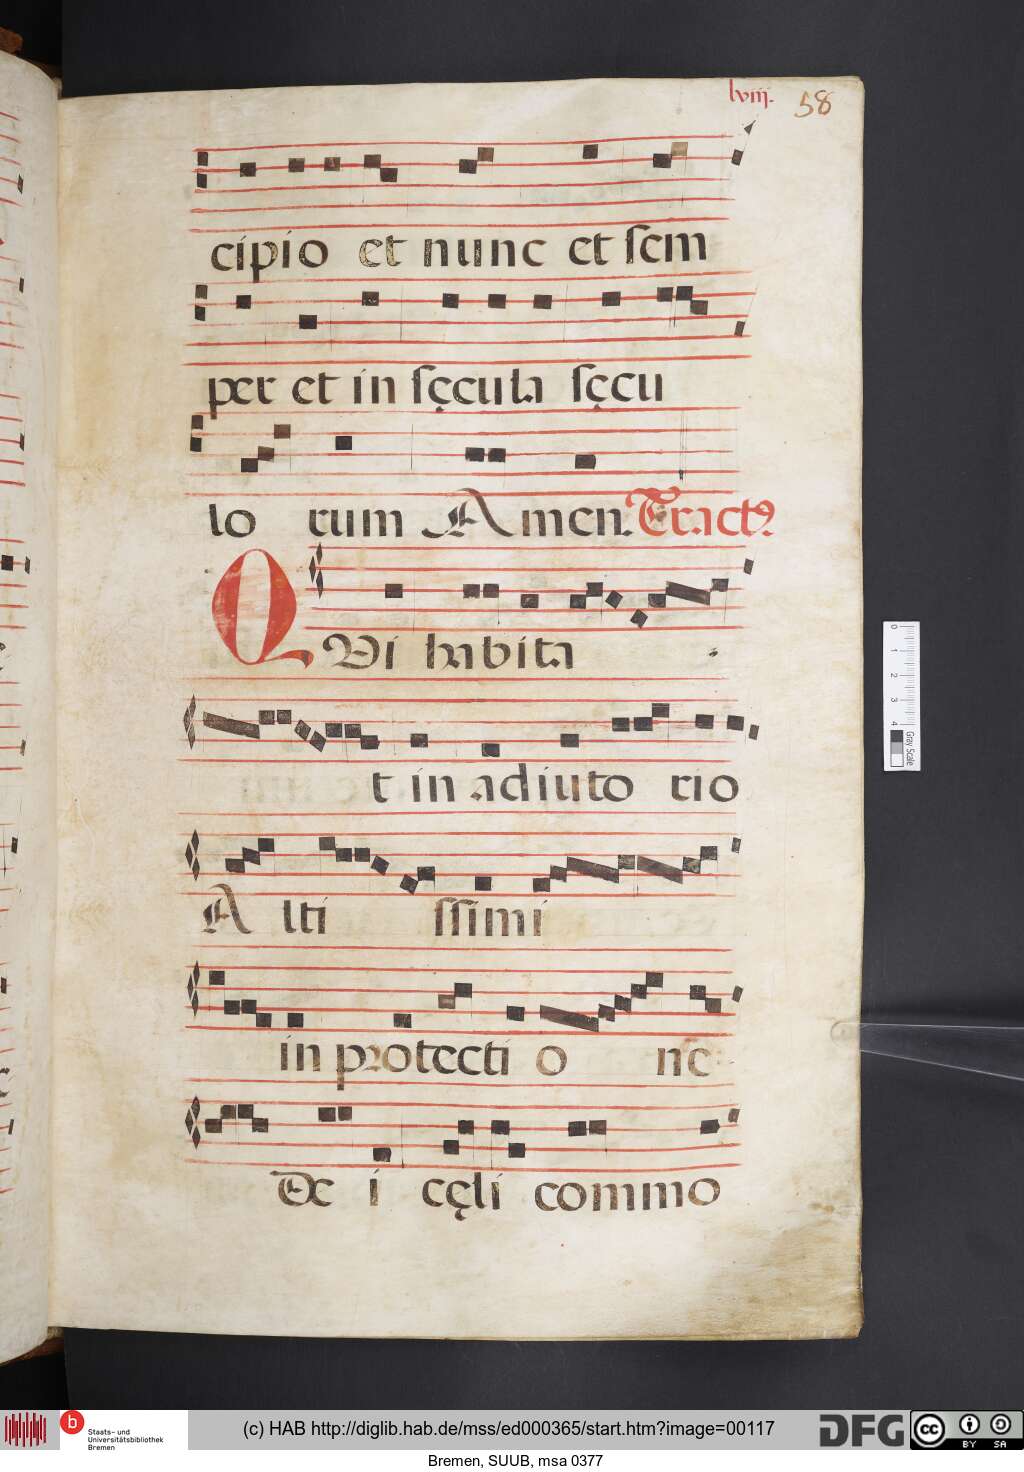 lviij. 58
cipio et nunc et sem
per et in sęcula sęcu
lo rum Amen. Tractꝰ
QVi habita
t in adiuto rio
A lti ssimi
in protecti o ne
De i cęli commo
0 1 2 3 4
Gray Scale
b Staats- und Universitätsbibliothek Bremen
(c) HAB http://diglib.hab.de/mss/ed000365/start.htm?image=00117
DFG
cc BY SA
Bremen, SUUB, msa 0377